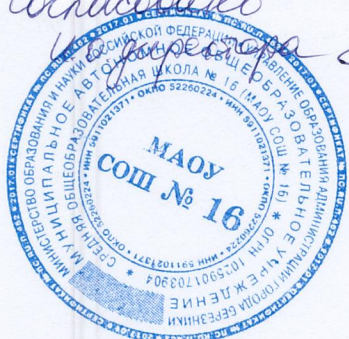 Согласовано
И.о. директора
МИНИСТЕРСТВО ОБРАЗОВАНИЯ И НАУКИ РОССИЙСКОЙ ФЕДЕРАЦИИ * УПРАВЛЕНИЕ ОБРАЗОВАНИЯ АДМИНИСТРАЦИИ ГОРОДА БЕРЕЗНИКИ
МУНИЦИПАЛЬНОЕ АВТОНОМНОЕ ОБЩЕОБРАЗОВАТЕЛЬНОЕ УЧРЕЖДЕНИЕ
СРЕДНЯЯ ОБЩЕОБРАЗОВАТЕЛЬНАЯ ШКОЛА № 16 (МАОУ СОШ № 16) * ОГРН 1025901703904 *
ИНН 5911021371 * ОКПО 52260224 * ИНН 5911021371 * ОКПО 52260224 * ИНН 5911021371 * ОКПО 52260224
МАОУ
СОШ № 16